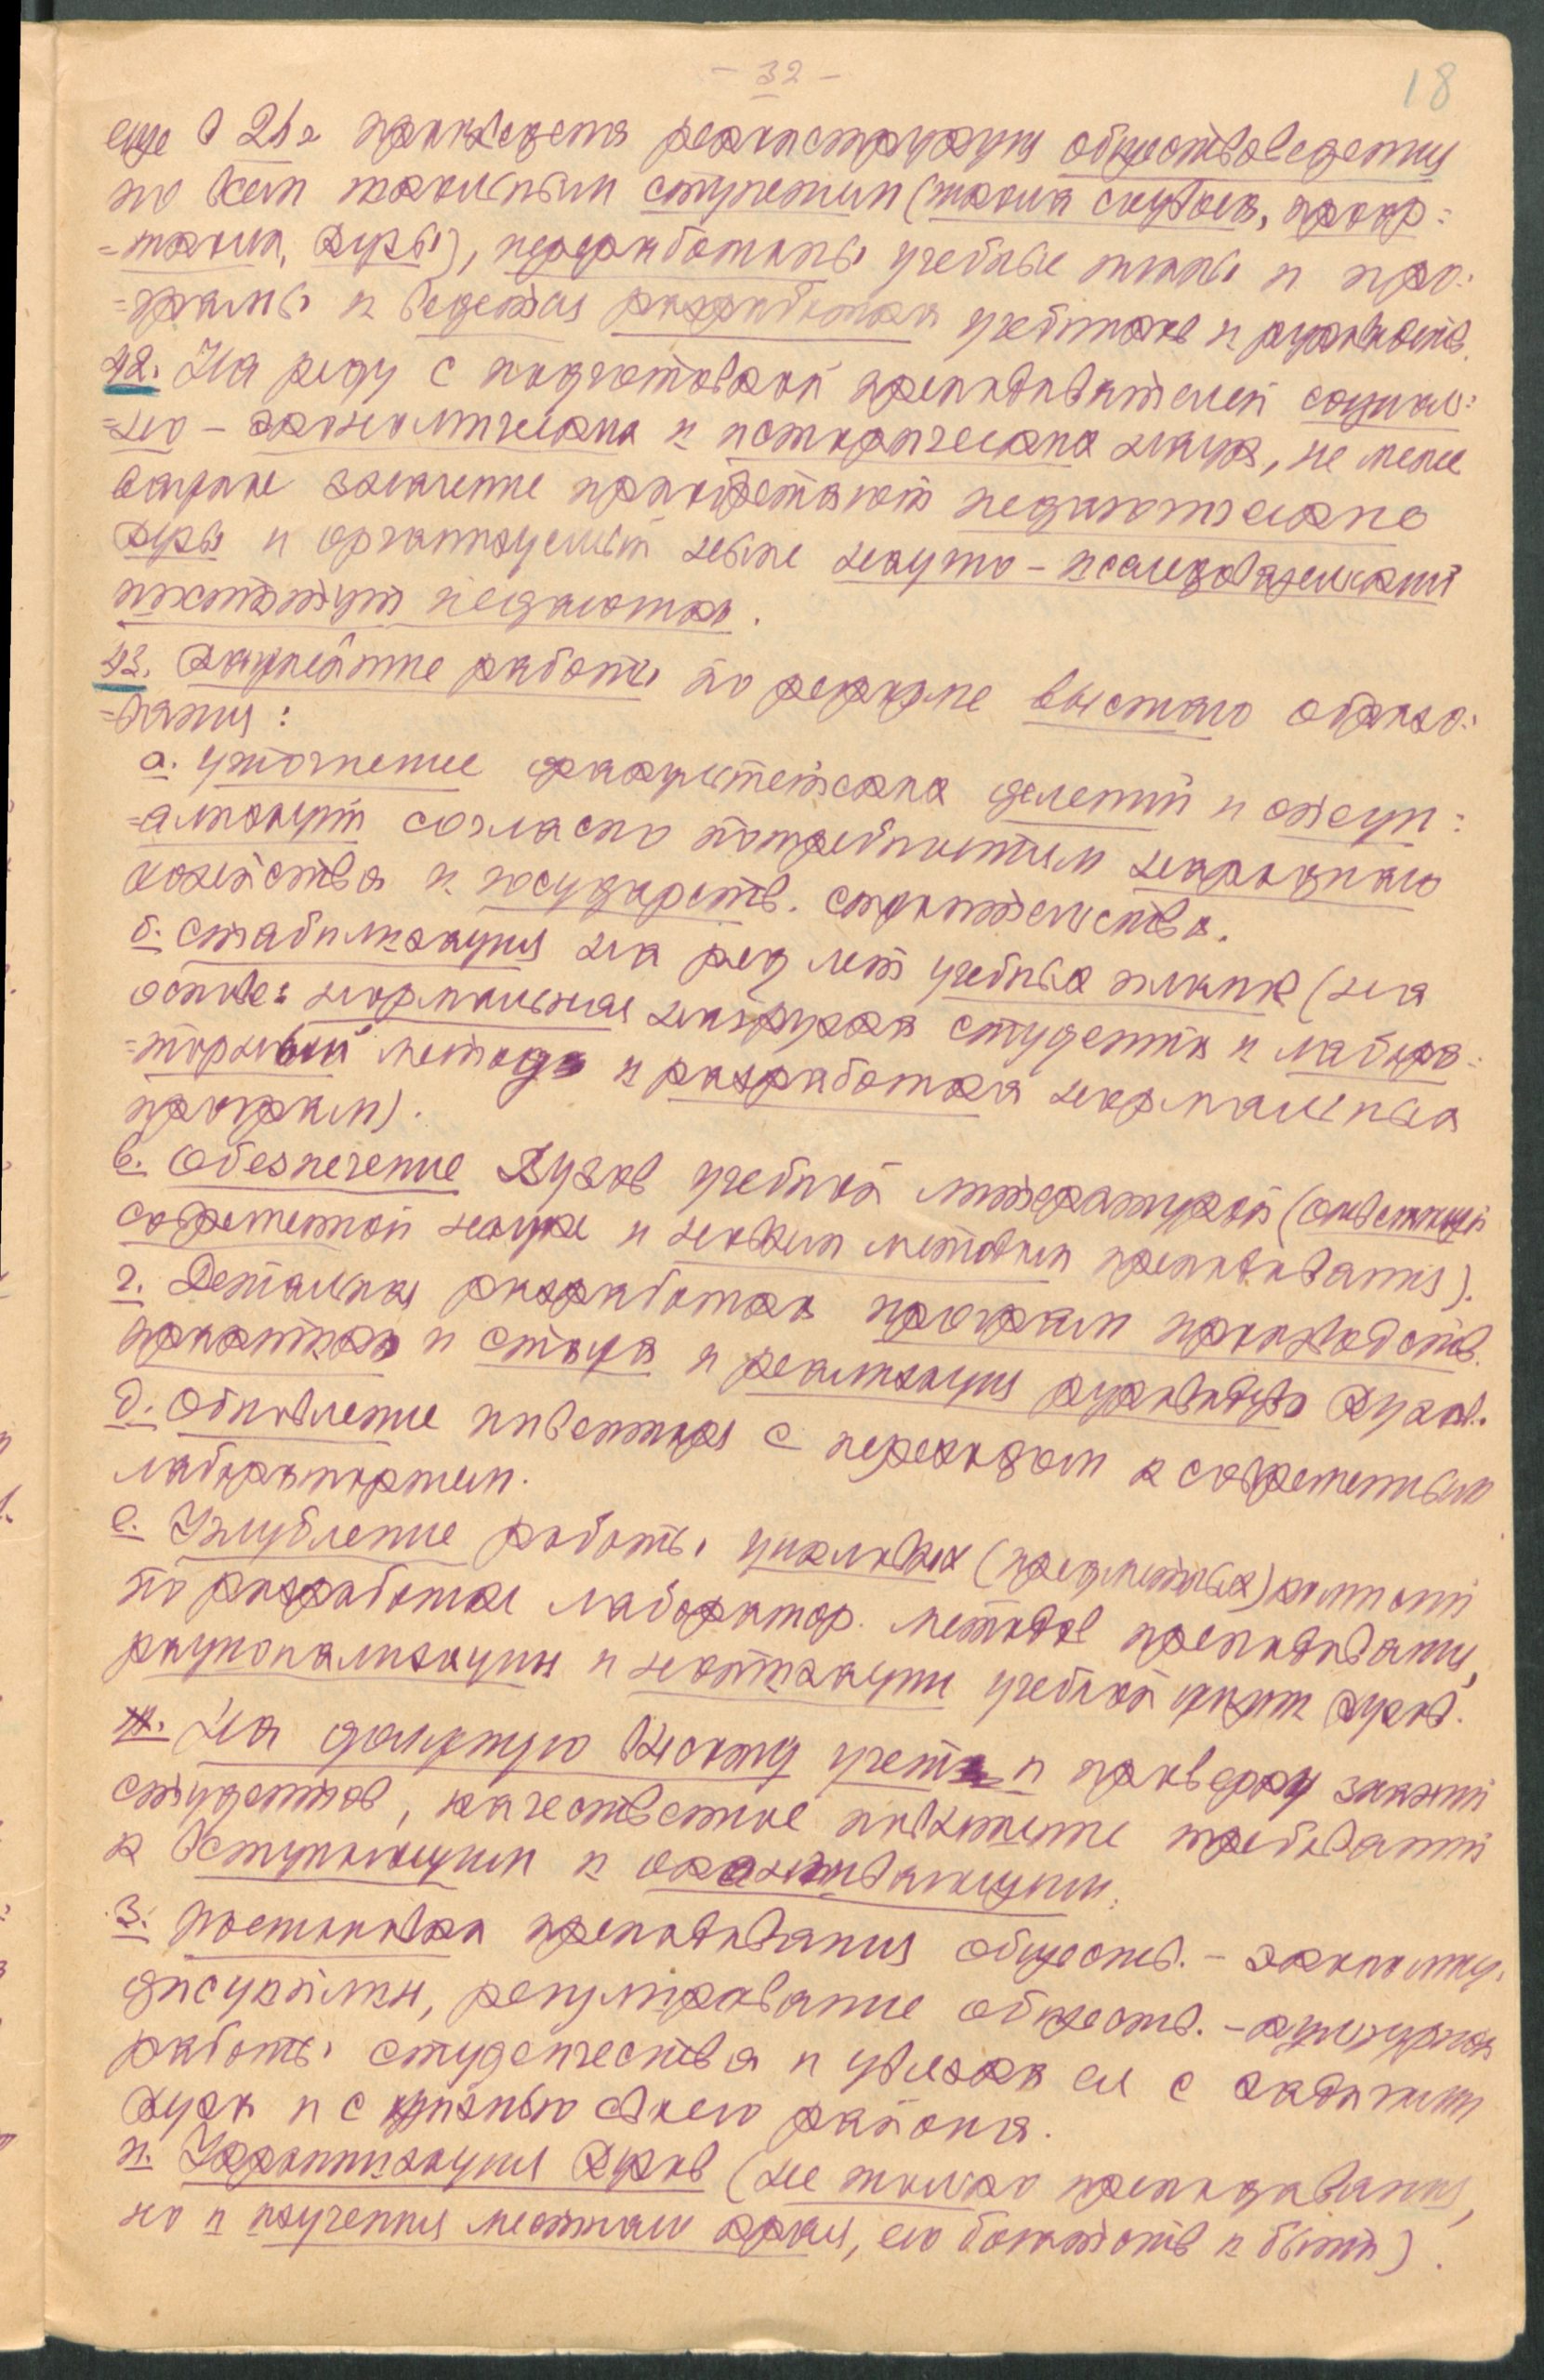 - 32 -
18
еще в 24 г произведена реконструкция обществоведения
по всем школьным ступеням (школа соцвоса, проф=
=школа, вузы), переработаны учебные планы и про=
=грамы и ведется разработка учебников и руководств.
42. На ряду с подготовкой преподавателей социаль=
=но-экономических и исторических наук, не менее
важное значение приобретают педагогические
вузы и организуемый ныне научно-исследовательский
институт педагогики.
43. Закрепление работы по реформе высшаго образо=
=вания:
а. уточнение факультетских делений и специ=
=ализаций согласно потребностям народнаго
хозяйства и государств. строительства.
б. стабилизация на ряд лет учебных планов (на
основе: нормальная нагрузка студента и лабора=
=торный метод и разработка нормальных
програм).
в. Обезпечение Вузов учебной литературой (ответствующей
современной науке и новым методам преподавания).
г. Детальная разработка програм производств.
практики и стажа и реализация руководства Вузов.
д. Обновление инвентаря с переходом к современным
лабораториям.
е. Углубление работы цикловых (предметных) комиссий
по разработке лаборатор. методов преподавания,
рационализации и нотизации учебной жизни Вузов.
ж. На должную высоту учет и проверку знаний
студентов, качественное повышение требований
к вступающим и оканчивающим.
з. Постановка преподавания обществ.-экономич.
дисциплин, регулирование обществ.-культурной
работы студенчества и увязка ея с задачами
вуза и с жизнью своего района.
и. Украинизация Вузов (не только преподавания,
но и изучения местнаго края, его богатств и быта).